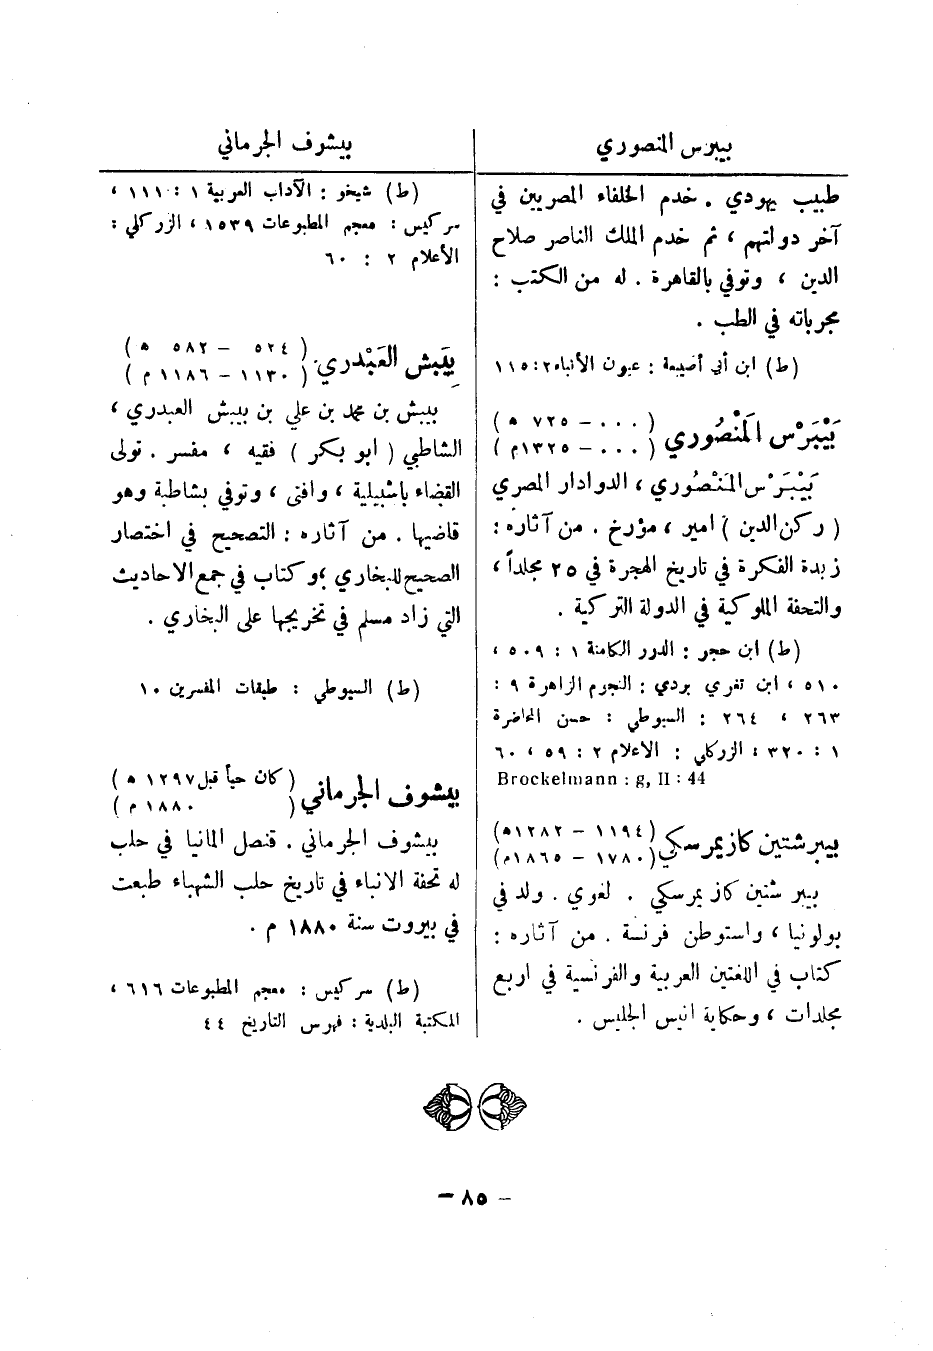 بيبرس المنصوري
طبيب يهودي . خدم الخلفاء المصريين في
آخر دولتهم ، ثم خدم الملك الناصر صلاح
الدين ، وتوفي بالقاهرة . له من الكتب :
مجرباته في الطب .
(ط) ابن أبي أصيبعة : عيون الأنباء ٢ : ١١٥
بَيْبَرْس المَنْصُوري ( ٠٠٠ – ٧٢٥ ه )
( ٠٠٠ – ١٣٢٥م )
بَيْبَرْس المَنْصُوري ، الدوادار المصري
( ركن الدين ) امير ، مؤرخ . من آثاره :
زبدة الفكرة في تاريخ الهجرة في ٢٥ مجلداً ،
والتحفة الملوكية في الدولة التركية .
(ط) ابن حجر : الدرر الكامنة ١ : ٥٠٩ ،
٥١٠ ، ابن تغري بردي : النجوم الزاهرة ٩ :
٢٦٣ ، ٢٦٤ : السيوطي : حسن المحاضرة
١ : ٣٢٠ : الزركلي : الاعلام ٢ : ٥٩ ، ٦٠
Brockelmann : g, II : 44
بيبرشتين كازيمرسكي ( ١١٩٤ – ١٢٨٢ه )
( ١٧٨٠ – ١٨٦٥م )
بيبر شتين كازيمرسكي . لغوي . ولد في
بولونيا ، واستوطن فرنسة . من آثاره :
كتاب في اللغتين العربية والفرنسية في اربع
مجلدات ، وحكاية انيس الجليس .
بيشوف الجرماني
(ط) شيخو : الآداب العربية ١ : ١١١ ،
سركيس : معجم المطبوعات ١٥٣٩ ، الزركلي :
الأعلام ٢ : ٦٠
بيبش العَبْدري ( ٥٢٤ – ٥٨٢ ه )
( ١١٣٠ – ١١٨٦ م )
بيبش بن محمد بن علي بن بيبش العبدري ،
الشاطبي ( ابو بكر ) فقيه ، مفسر . تولى
القضاء باشبيلية ، وافتى ، وتوفي بشاطبة وهو
قاضيها . من آثاره : التصحيح في اختصار
الصحيح للبخاري ، وكتاب في جمع الاحاديث
التي زاد مسلم في تخريجها على البخاري .
(ط) السيوطي : طبقات المفسرين ١٠
بيشوف الجرماني ( كان حياً قبل ١٢٩٧ ه )
( ١٨٨٠ م )
بيشوف الجرماني . قنصل المانيا في حلب
له تحفة الانباء في تاريخ حلب الشهباء طبعت
في بيروت سنة ١٨٨٠ م .
(ط) سركيس : معجم المطبوعات ٦١٦ ،
المكتبة البلدية : فهرس التاريخ ٤٤
– ٨٥ –